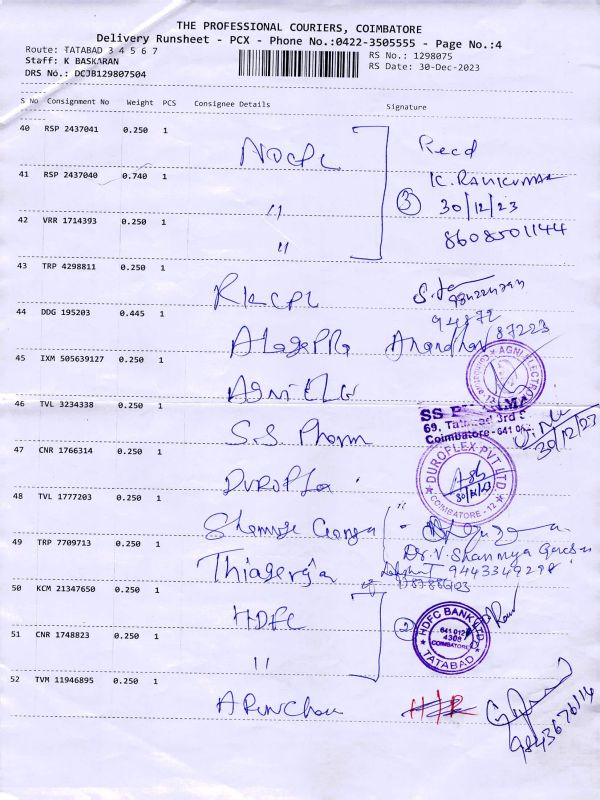 THE PROFESSIONAL COURIERS, COIMBATORE
Delivery Runsheet - PCX - Phone No.:0422-3505555 - Page No.:4
Route: TATABAD 3 4 5 6 7
RS No.: 1298075
Staff: K BASKARAN
RS Date: 30-Dec-2023
DRS No.: DCJB129807504
S No Consignment No Weight PCS Consignee Details Signature
40 RSP 2437041 0.250 1 NOCPL Recd
41 RSP 2437040 0.740 1 " K. RAVIKUMAR
3 30/12/23
42 VRR 1714393 0.250 1 " 8608501144
43 TRP 4298811 0.250 1 RKCPL
44 DDG 195203 0.445 1 94872
87223
45 IXM 505639127 0.250 1 Agni
AGNI ELECTRO
46 TVL 3234338 0.250 1 S.S Pharm
SS PHARMA
69, Tatabad 3rd S
Coimbatore - 641 0
30/12/23
47 CNR 1766314 0.250 1
DUROFLEX PVT LTD
30/12/23
COIMBATORE - 12
48 TVL 1777203 0.250 1
49 TRP 7709713 0.250 1
Dr. V. Shanmuga
9443349298
50 KCM 21347650 0.250 1 HDFC
2
HDFC BANK LTD
641 012
4308
COIMBATORE
TATABAD
51 CNR 1748823 0.250 1 "
52 TVM 11946895 0.250 1 H/R
9843676114